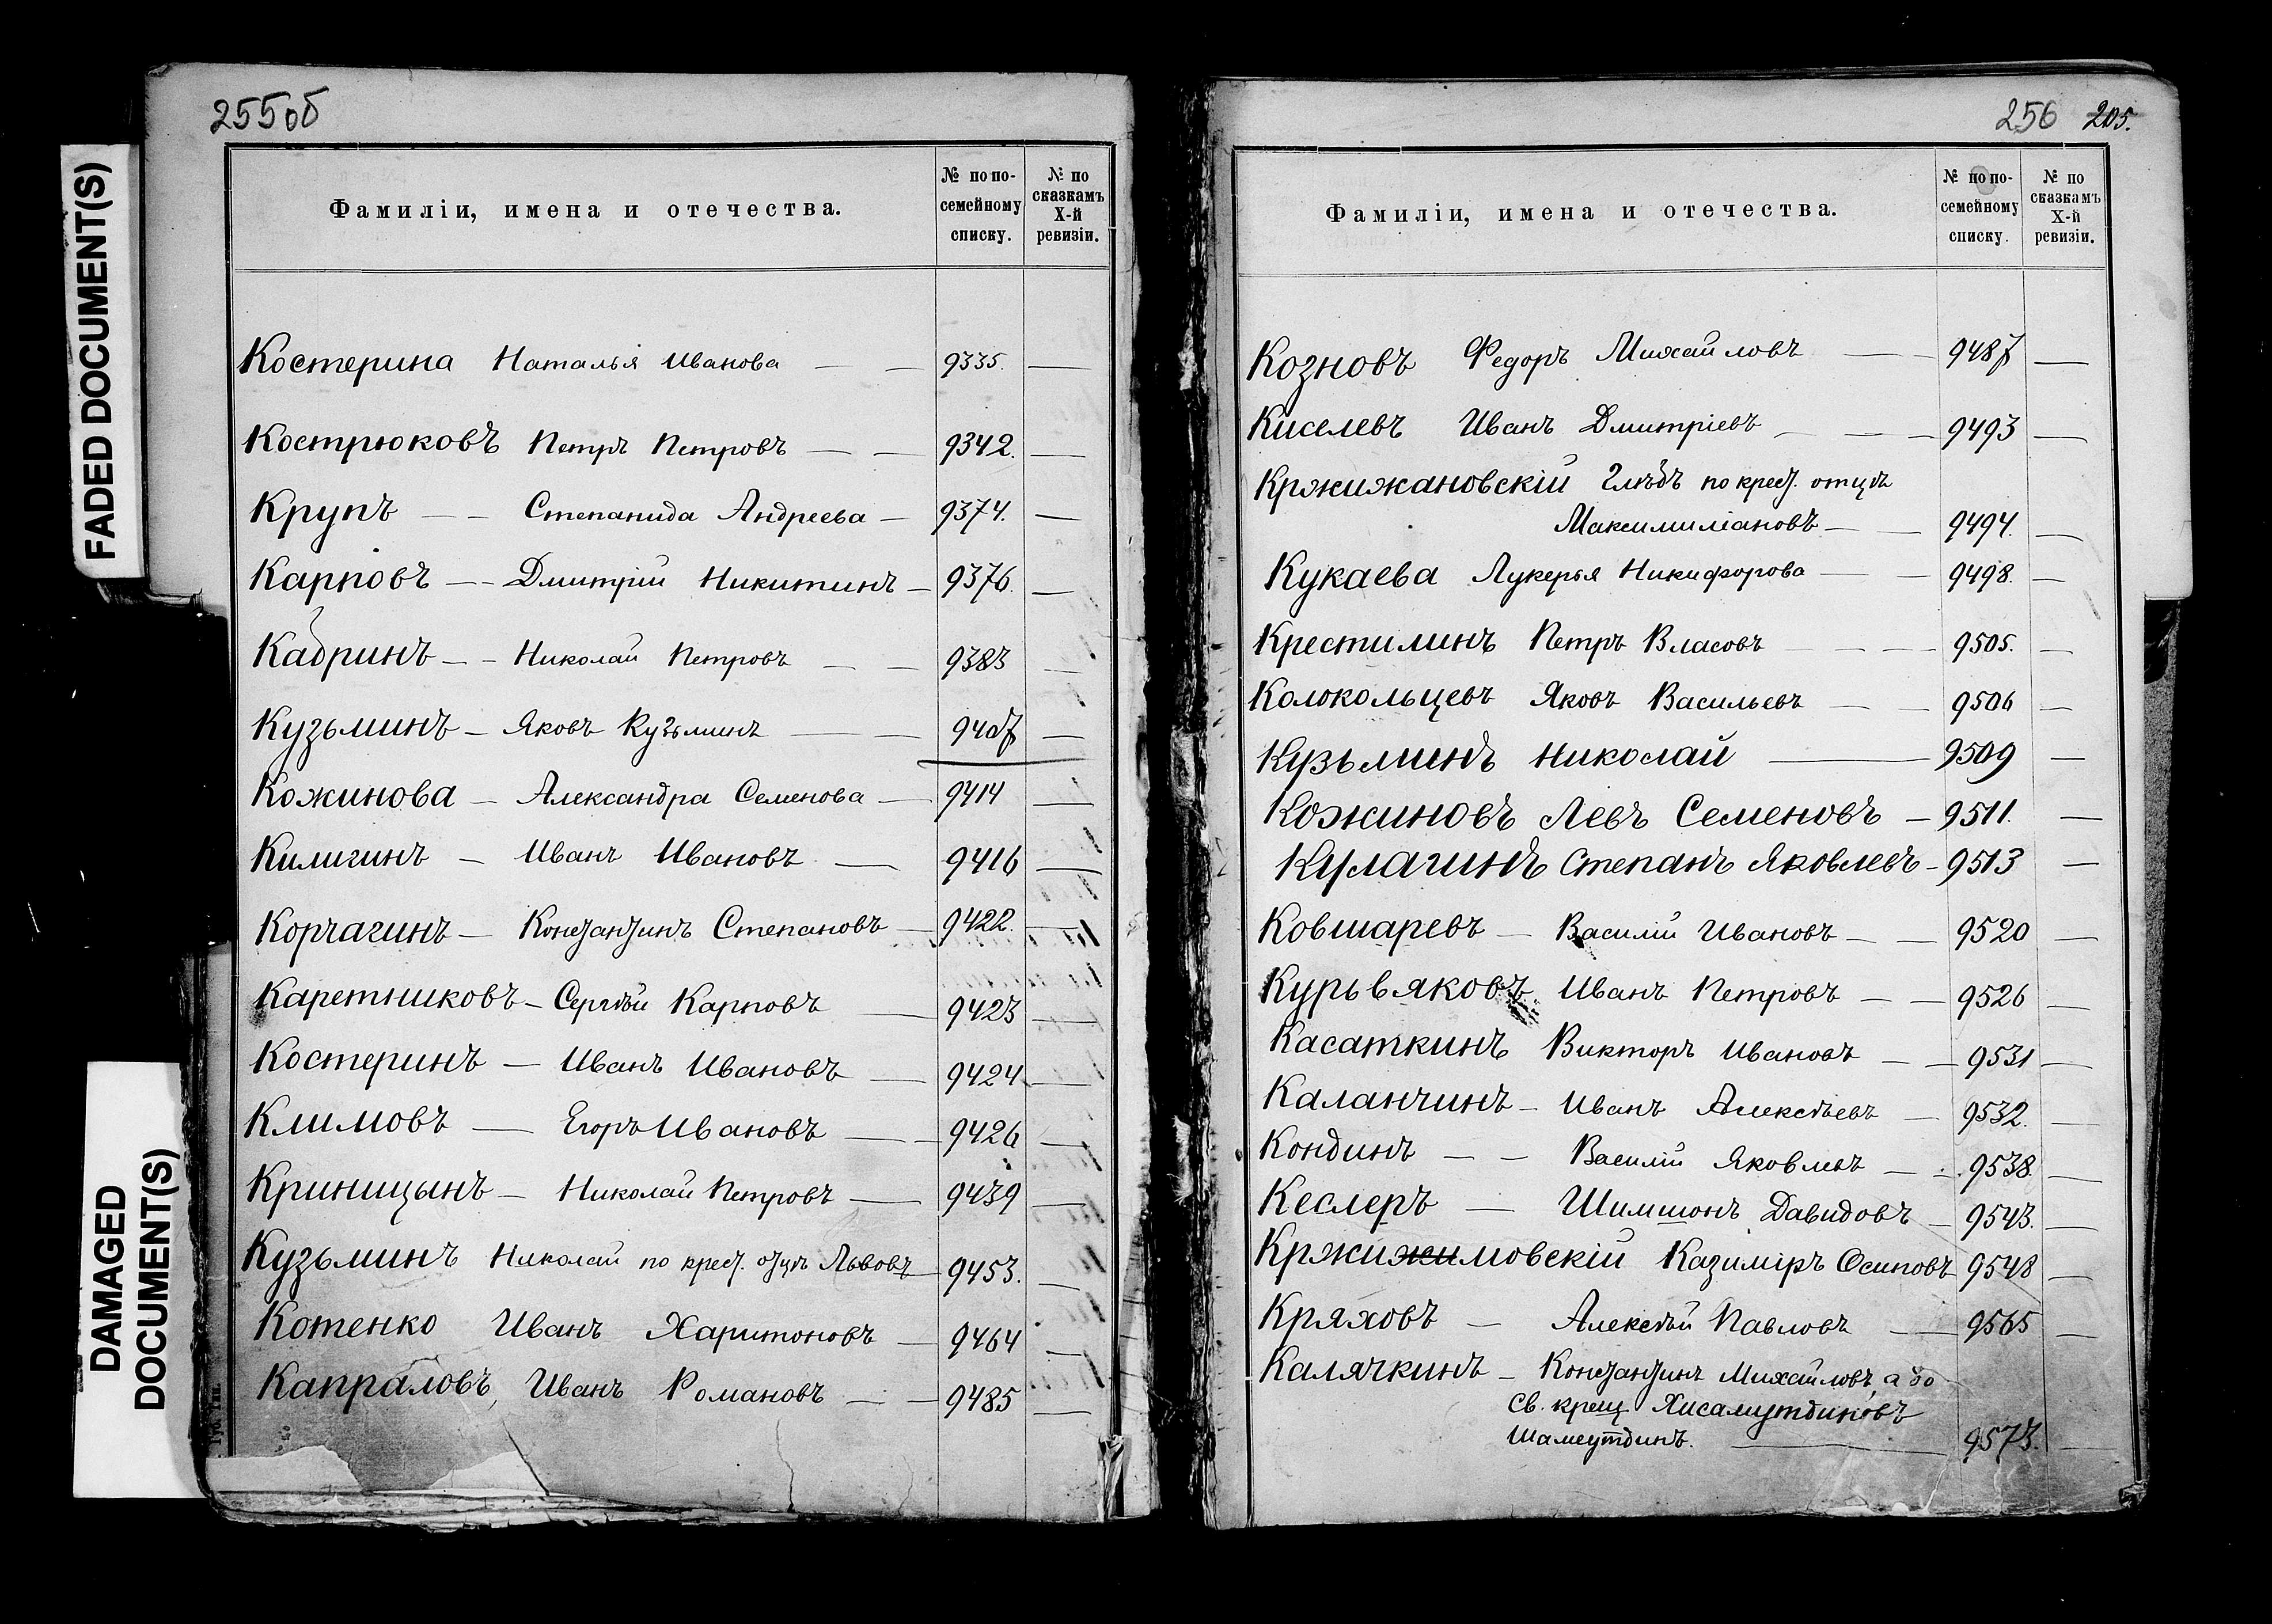 255об
Фамиліи, имена и отечества.
№ по по-
семейному
списку.
№ по
сказкамъ
X-й
ревизіи.
Костерина Наталья Иванова — — 9335. —
Кострюковъ Петръ Петровъ — — 9342. —
Крупъ — — Степанида Андреева — 9374. —
Карповъ — — Дмитрій Никитинъ — 9376. —
Кадринъ — — Николай Петровъ — — 9383 —
Кузьминъ — Яковъ Кузьминъ — — 9407 —
Кожинова — Александра Семенова — 9414 —
Килигинъ — Иванъ Ивановъ — 9416 —
Корчагинъ — Константинъ Степановъ — 9422. —
Каретниковъ — Сергѣй Карповъ — 9423 —
Костеринъ — Иванъ Ивановъ — 9424 —
Климовъ — Егоръ Ивановъ — — 9426 —
Криницынъ — Николай Петровъ — 9439 —
Кузьминъ Николай по крест. отцѣ Львовъ 9453. —
Котенко Иванъ Харитоновъ — 9464 —
Капраловъ, Иванъ Романовъ — — 9485 —
Губ. Тип.
256 205.
Фамиліи, имена и отечества.
№ по по-
семейному
списку.
№ по
сказкамъ
X-й
ревизіи.
Козновъ Федоръ Михайловъ — — 9487 —
Киселевъ Иванъ Дмитріевъ — — — 9493 —
Кржижановскій Глѣбъ по крест. отцѣ
Максимиліановъ — — 9494. —
Кукаева Лукерья Никифорова — — 9498. —
Крестилинъ Петръ Власовъ — — — 9505. —
Колокольцевъ Яковъ Васильевъ — — 9506 —
Кузьминъ Николай — 9509 —
Кожиновъ Левъ Семеновъ — 9511. —
Кулагинъ Степанъ Яковлевъ — 9513 —
Ковшаревъ — Василій Ивановъ — — 9520 —
Курьвяковъ Иванъ Петровъ — — 9526 —
Касаткинъ Викторъ Ивановъ — — 9531 —
Каланчинъ — Иванъ Алексѣевъ — 9532. —
Кондинъ — — Василій Яковлевъ — — 9538. —
Кеслеръ — Шимшонъ Давидовъ — 9543. —
Кржижимовскій Казиміръ Осиповъ 9548 —
Кряховъ — Алексѣй Павловъ — 9565 —
Калячкинъ — Константинъ Михайловъ, а до
Св. крещ. Хисамутдиновъ
Шамсутдинъ. — 9573. —
FADED DOCUMENT(S)
DAMAGED
DOCUMENT(S)